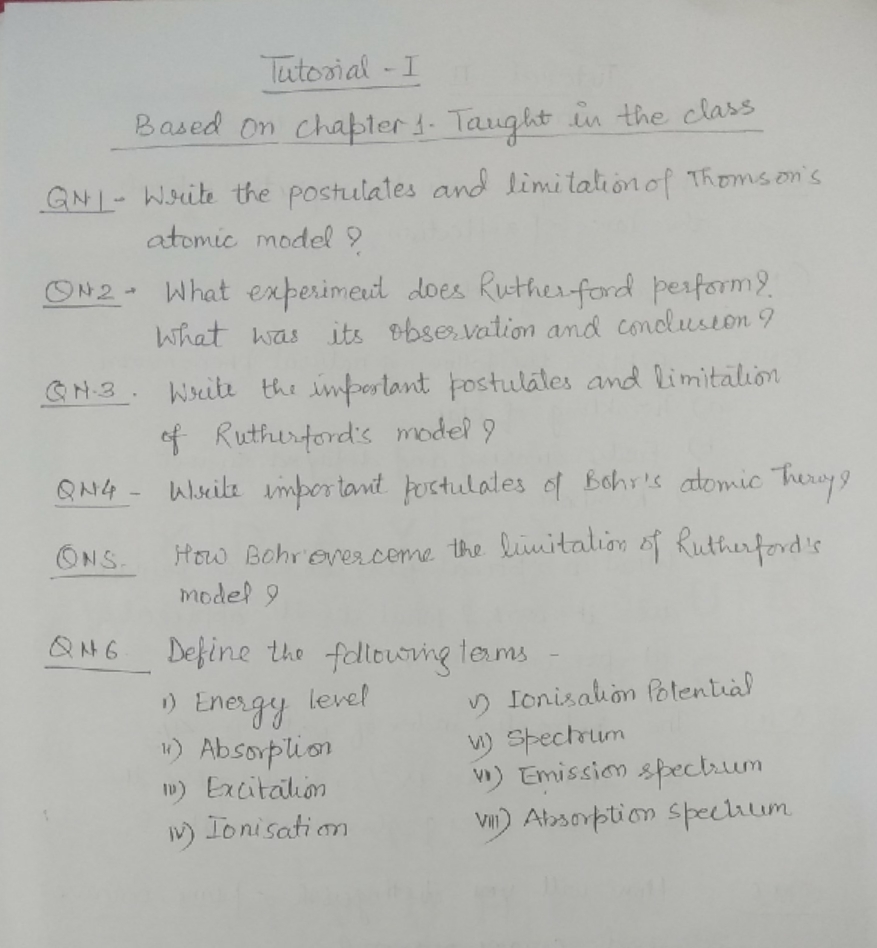 Tutorial - I
Based on chapter 1. Taught in the class
QN1 - Write the postulates and limitation of Thomson's
atomic model ?
QN2 - What experiment does Rutherford perform?
What was its observation and conclusion ?
QN.3. Write the important postulates and limitation
of Rutherford's model ?
QN4 - Write important postulates of Bohr's atomic Thery?
QN5. How Bohr overcome the limitation of Rutherford's
model ?
QN6 Define the following terms -
i) Energy level
v) Ionisation Potential
ii) Absorption
vi) Spectrum
iii) Excitation
vii) Emission spectrum
iv) Ionisation
viii) Absorption spectrum